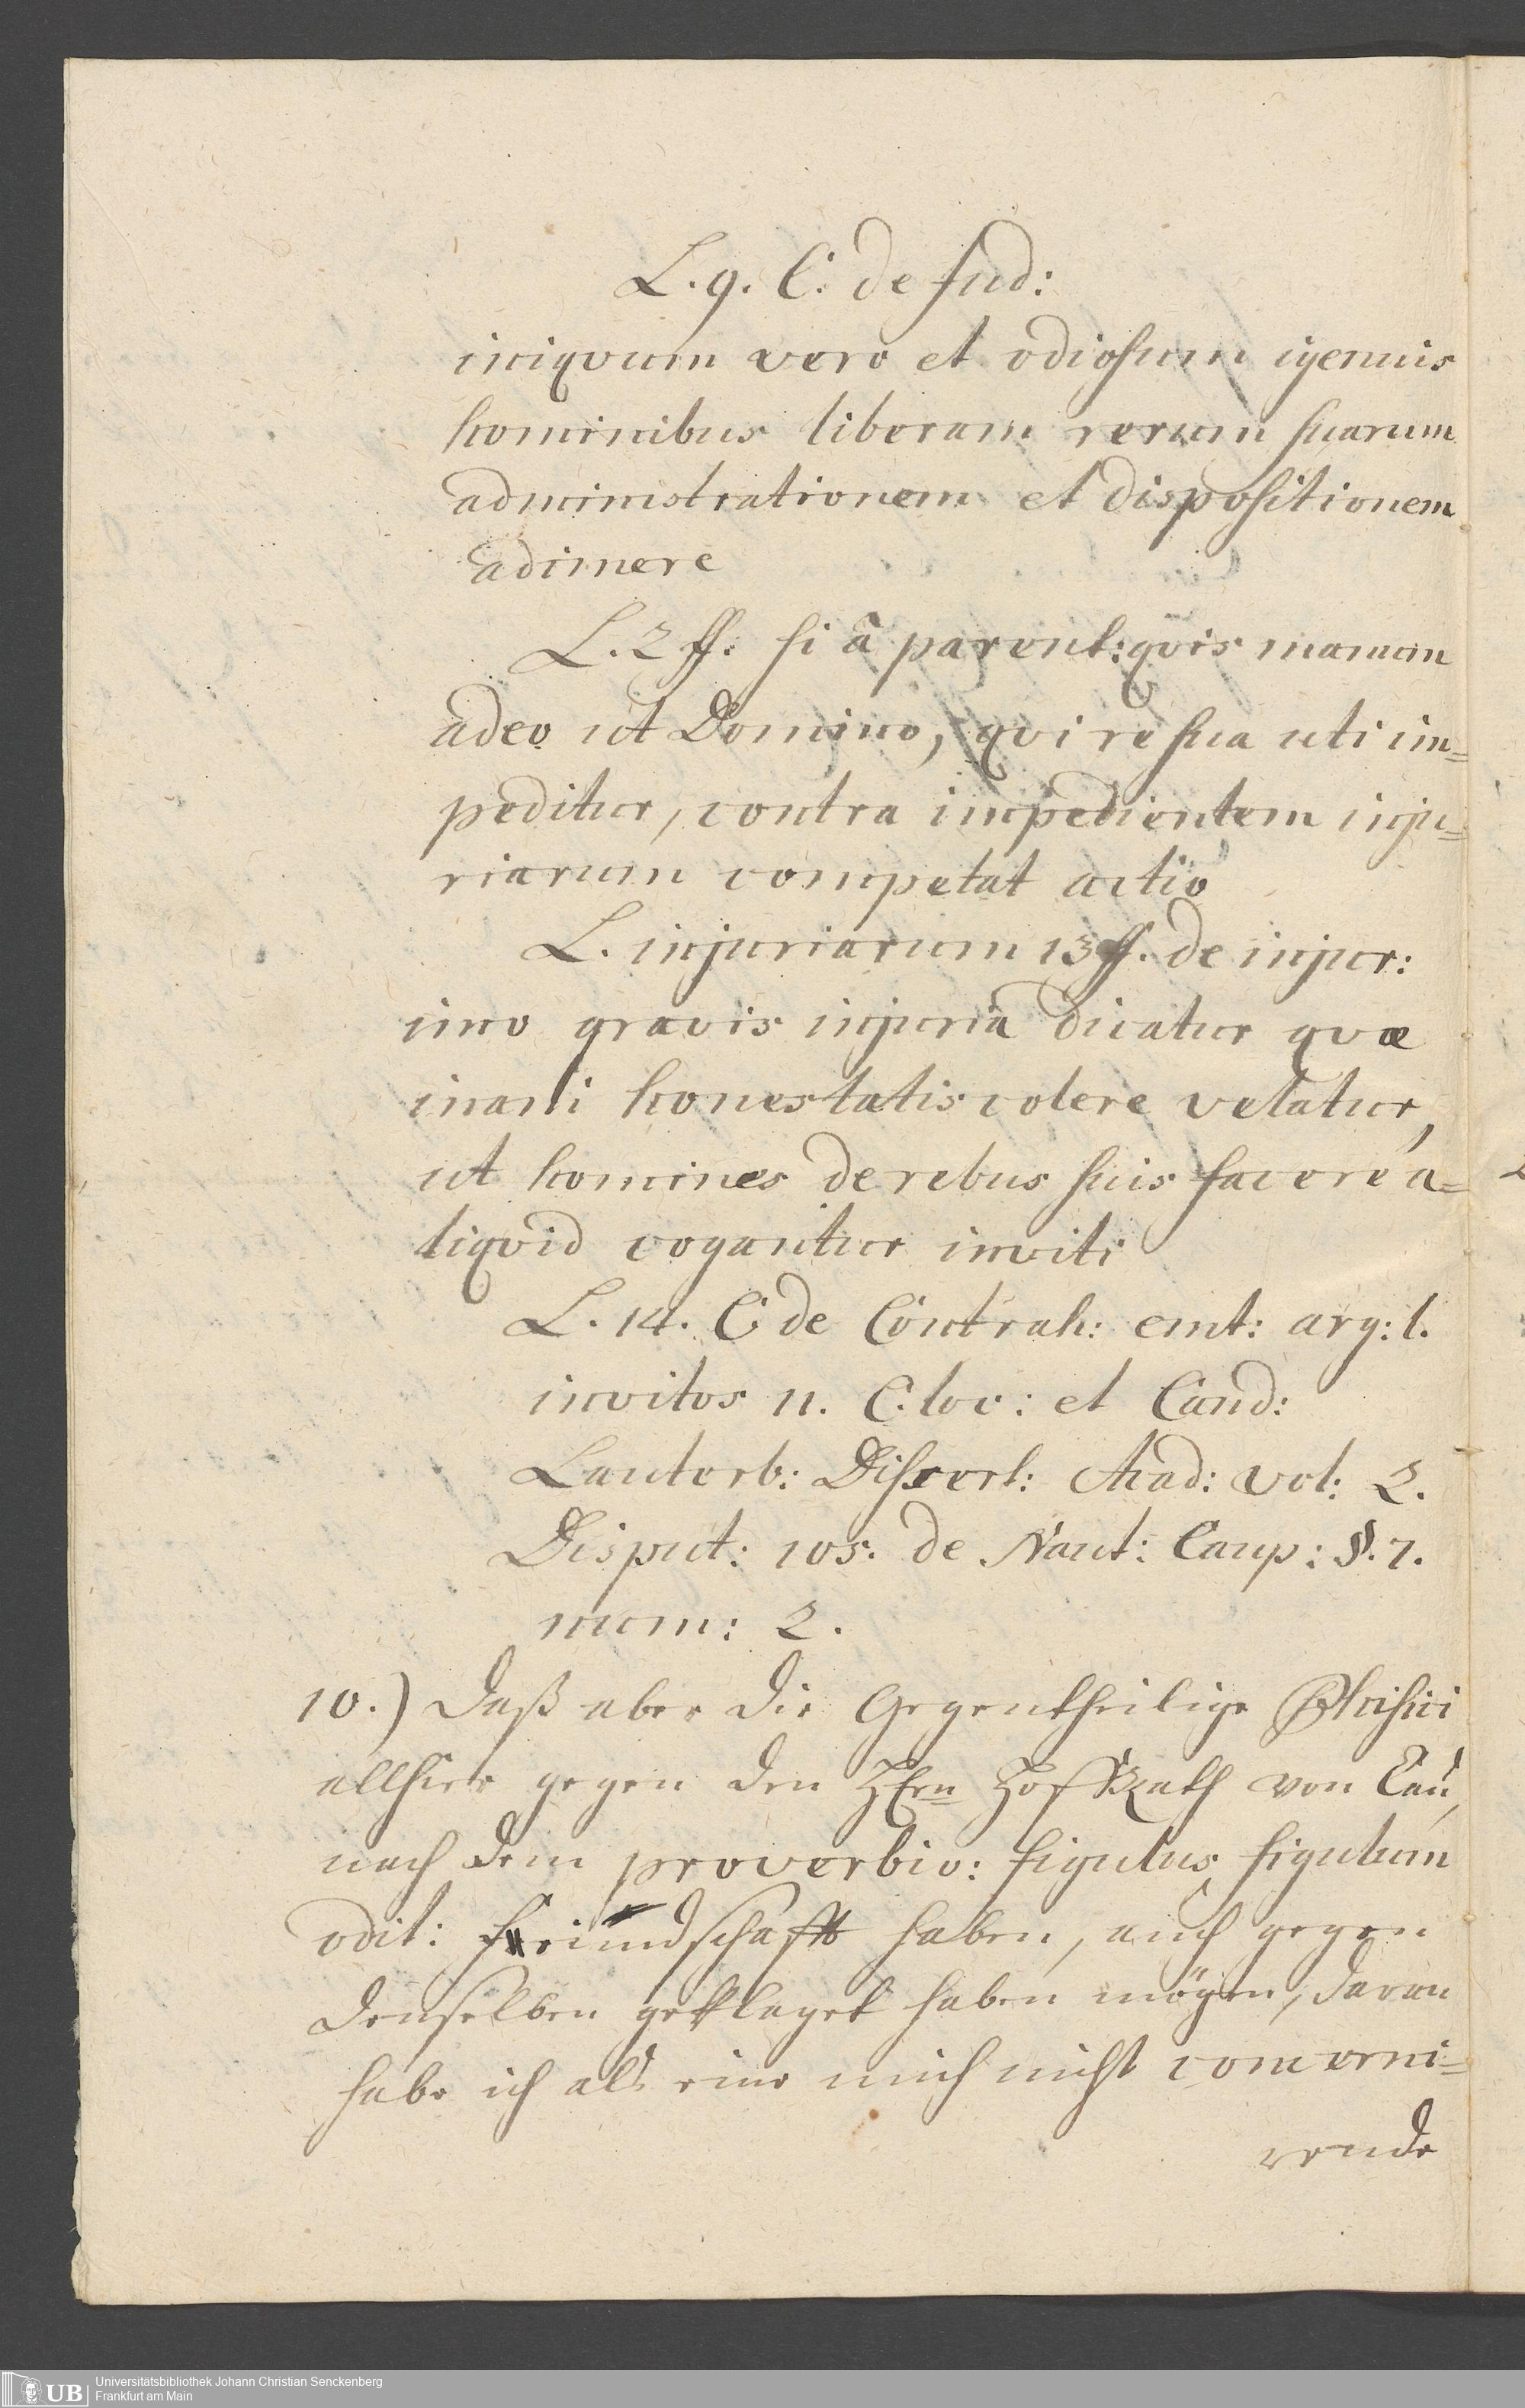 L. 9. C. de Jud:
iniqvum vero et odiosum igenuis
hominibus liberam rerum suarum
administrationem et dispositionem
adimere
L. 2 ff. si â parent: qvis manum
adeo ut Domino, qvi re sua uti im=
peditur, contra impedientem inju=
riarum competat actio
L. injuriarum 13 ff. de injur:
imo gravis injuria dicatur qvæ
inani honestatis colere velatur,
ut homines de rebus suis facere a=
liqvid cogantur inviti
L. 14. C de Contrah: emt: arg: l.
invitos 11. C. loc: et Cand:
Lauterb: Dissert: Acad: vol: 2.
Disput: 105. de Naut: Caup: §. 7.
num: 2.
10.) Daß aber die Gegentheilige Phisici
allhier gegen den HErn HofRath von Cau,
nach dem proverbio: figulus figulum
odit: feindschafft haben, auch gegen
denselben geklaget haben mögen, daran
habe ich als eine mich nicht concerni=
rende
Universitätsbibliothek Johann Christian Senckenberg
Frankfurt am Main
UB